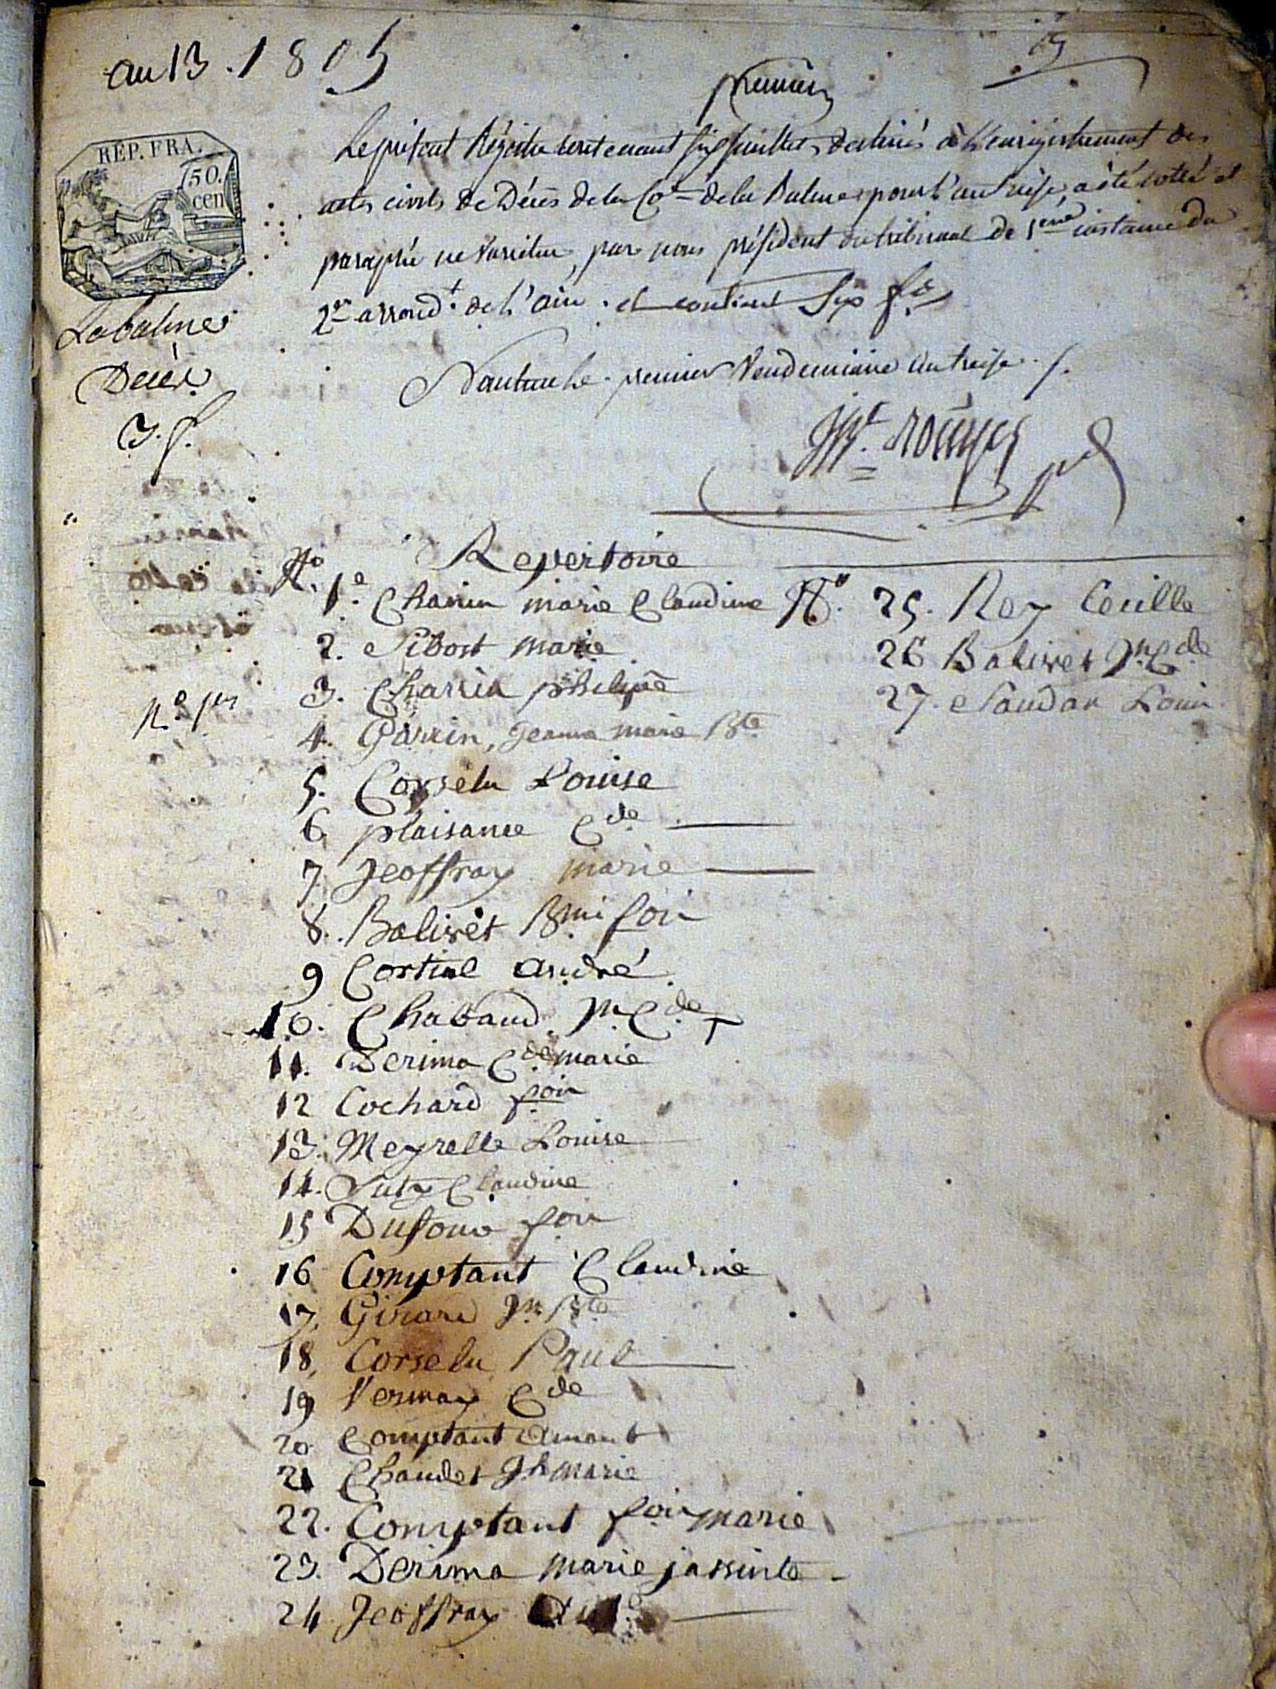 au 13. 1805
premier
REP. FRA.
50.
cen
Le présent Régistre contenant six feuillets destinés à l'enrigistrement des
actes civils de Décès de la Cne de la Balme pour l'an treise a été cotté et
paraphé ne varietur, par nous président du tribunal de 1ere instance du
2e arrondt. de l'ain. et contient Six fts
Labalme
Décès
3. f.
Nantua le premier Vendemiaire an treise.
Repertoire
No. 1e. Charin marie Claudine
2. Sibost marie
3. Charin philipe
4. Garin, jeanne marie Bte
5. Corselu Louise
6. plaisance Cde
7. Jeoffray marie
8. Balivet Bmi foi
9 Cortial André
10. Chaband. M. Cde
11. Derima Cde marie
12 Cochard foi
13. Meyrelle Louise
14. Claudine
15 Dufour foi
16 Comptant Claudine
17. Girard Jn Bte
18. Corselu Paul
19 Vermay Cde
20 Comptant Amant
21 Chaudet Jh marie
22. Comptant foi marie
23. Derima marie jassinte
24 Jeoffray
No. 25. Rey Cecille
26 Balivet M Cde
27. Saudan Louis
No 1er